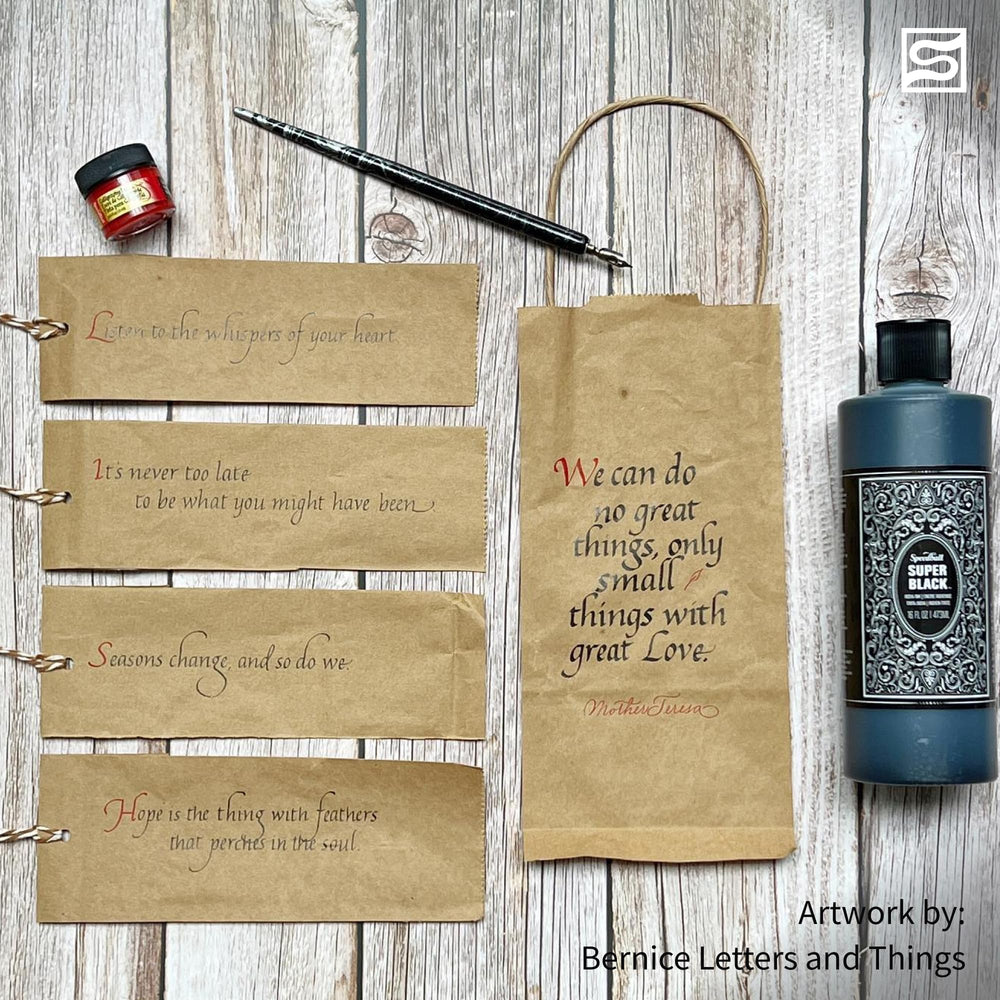 Listen to the whispers of your heart.
It's never too late
to be what you might have been
Seasons change, and so do we.
Hope is the thing with feathers
that perches in the soul.
We can do
no great
things, only
small
things with
great Love.
Mother Teresa
Speedball
SUPER
BLACK
16 FL OZ | 473ML
Artwork by:
Bernice Letters and Things